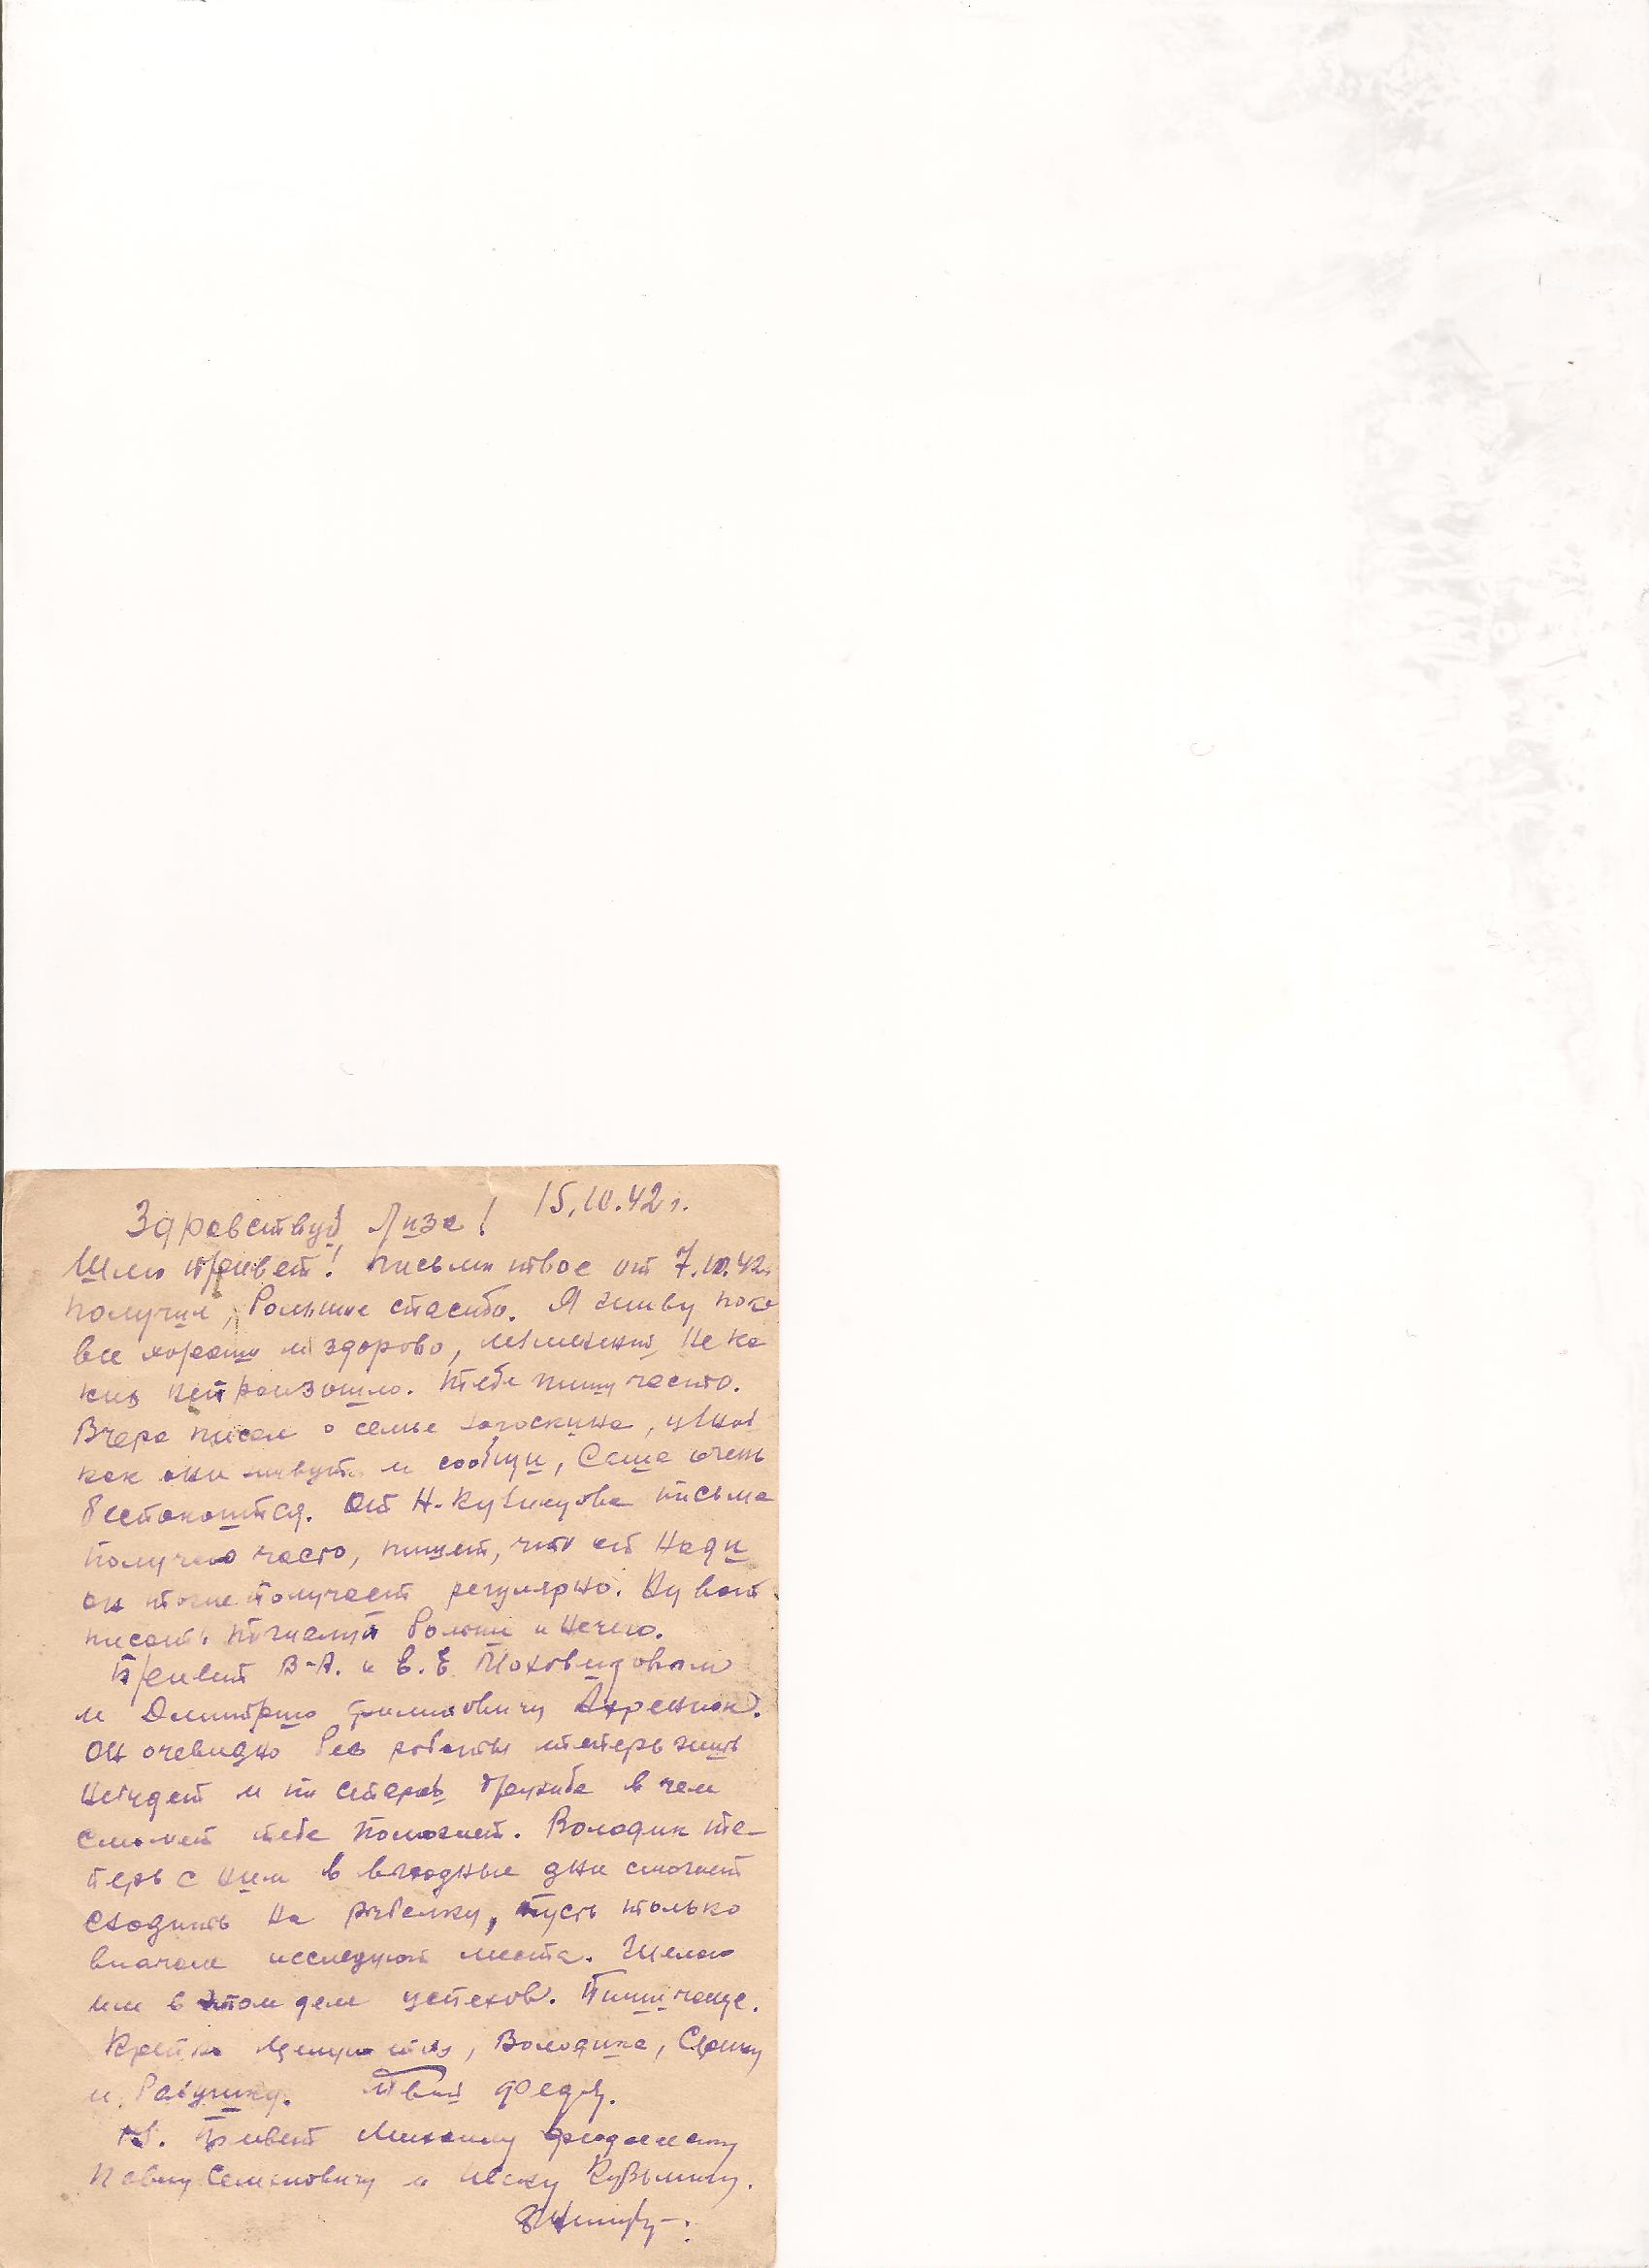 15.10.42 г.
Здравствуй Лиза!
Шлю привет! письмо твое от 7.10.42г.
получил, большое спасибо. Я живу пока
все хорошо и здорово, изменений не ка
ких не произошло. Тебе пишу часто.
Вчера писал о семье Загоскина, узнай
как они живут и сообщи, Саша очень
беспокоится. От Н. Кузнецова письма
получаю часто, пишет, что от Нади
он тоже получает регулярно. Ну вот
писать пожалуй больше и нечего.
Привет В-А. и Е. Е. Моховидовым
и Дмитрию Филиповичу
Он очевидно без работы теперь
и по старой дружбе в чем
сможет тебе поможет. Володик те-
перь с ним в выходные дни сможет
сходить на рыбалку, пусть только
вначале исследуют места. Желаю
им в этом деле успехов. Пиши чаще.
Крепко целую тебя, Володика,
и твой Федя.
Привет Михаилу
Павлу Семеновичу и Кузьмичу.